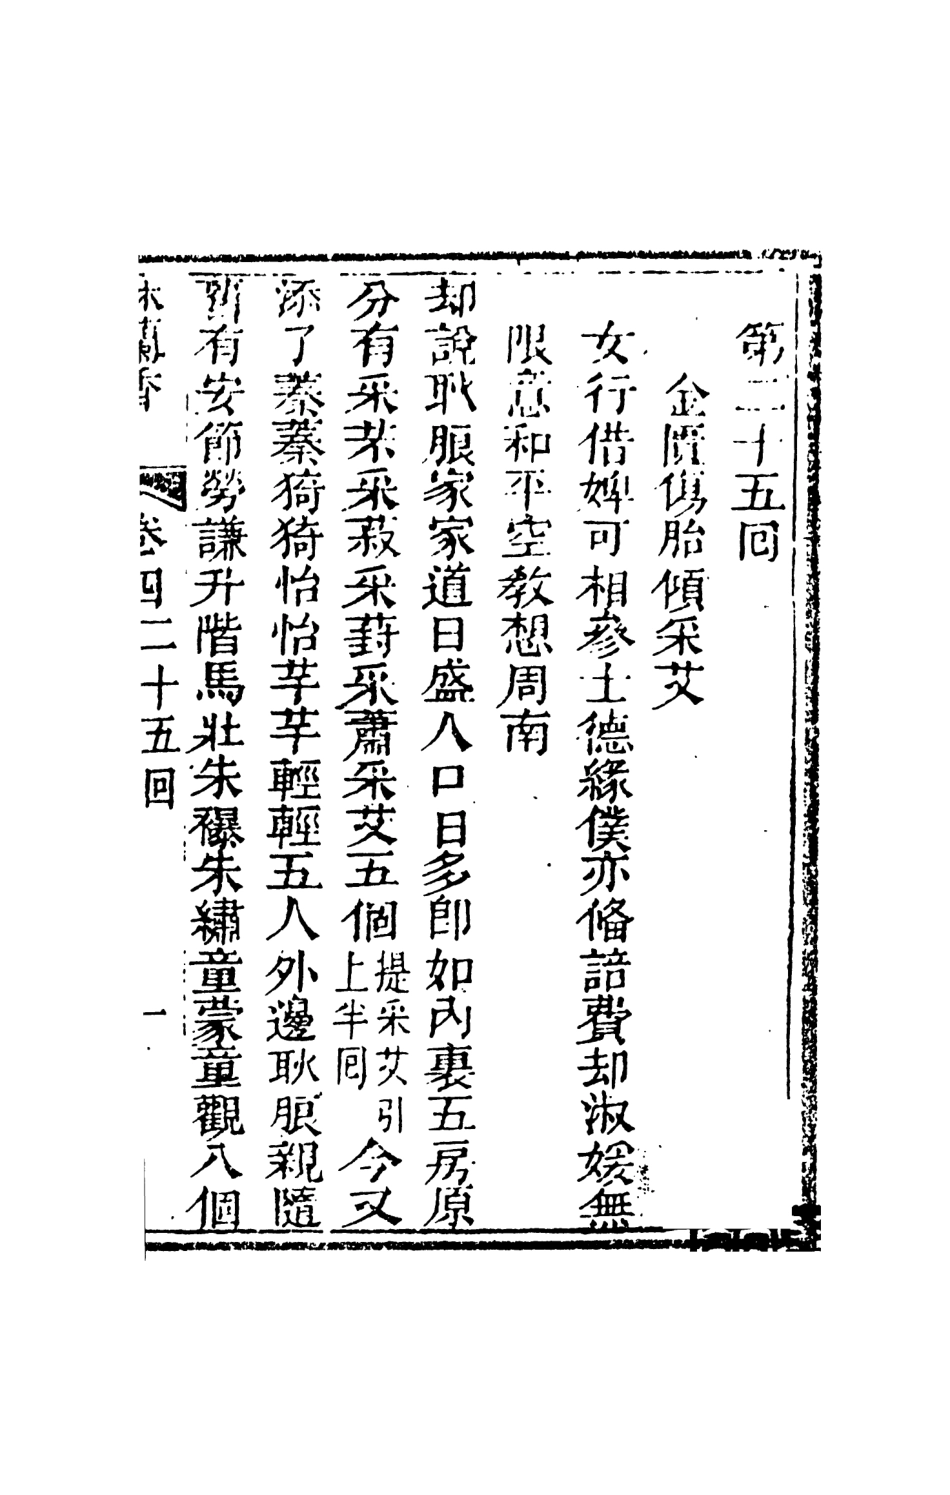 第二十五回
金隕傷胎傾采艾
女行借婢可相參士德緣僕亦俻諳費却淑媛無
限意和平空教想周南
却說耿朖家家道日盛人口日多即如內裏五房原
分有采芣采菽采葑采蕭采艾五個提采艾引上半回今又
添了蓁蓁猗猗怡怡芊芊輕輕五人外邊耿朖親隨
有安節勞謙升階馬壯朱襮朱繡童蒙童觀八個
林蘭香 卷四二十五回 一